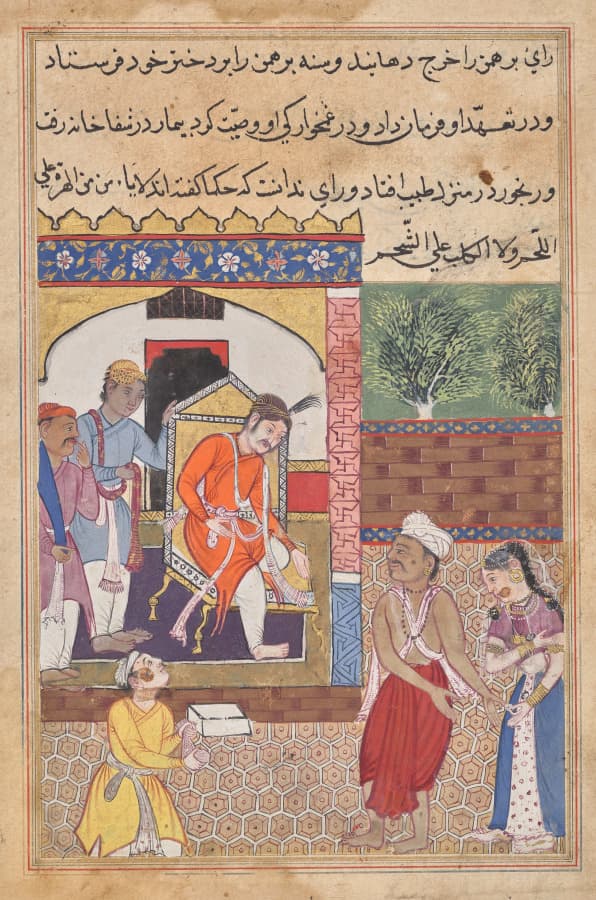 رای برهمن را خرج دهانید و سنه برهمن را بر دختر خود فرستاد
و در تعهّد او فرمان داد و در غمخوارکی او وصیّت کرد بیمار در شفاخانه رفت
و رنجور در منزل طبیب افتاد و رای ندانست که حکما کفته اند لایاءمن من الهرة علي
اللحم ولا الکلب علي الشحم